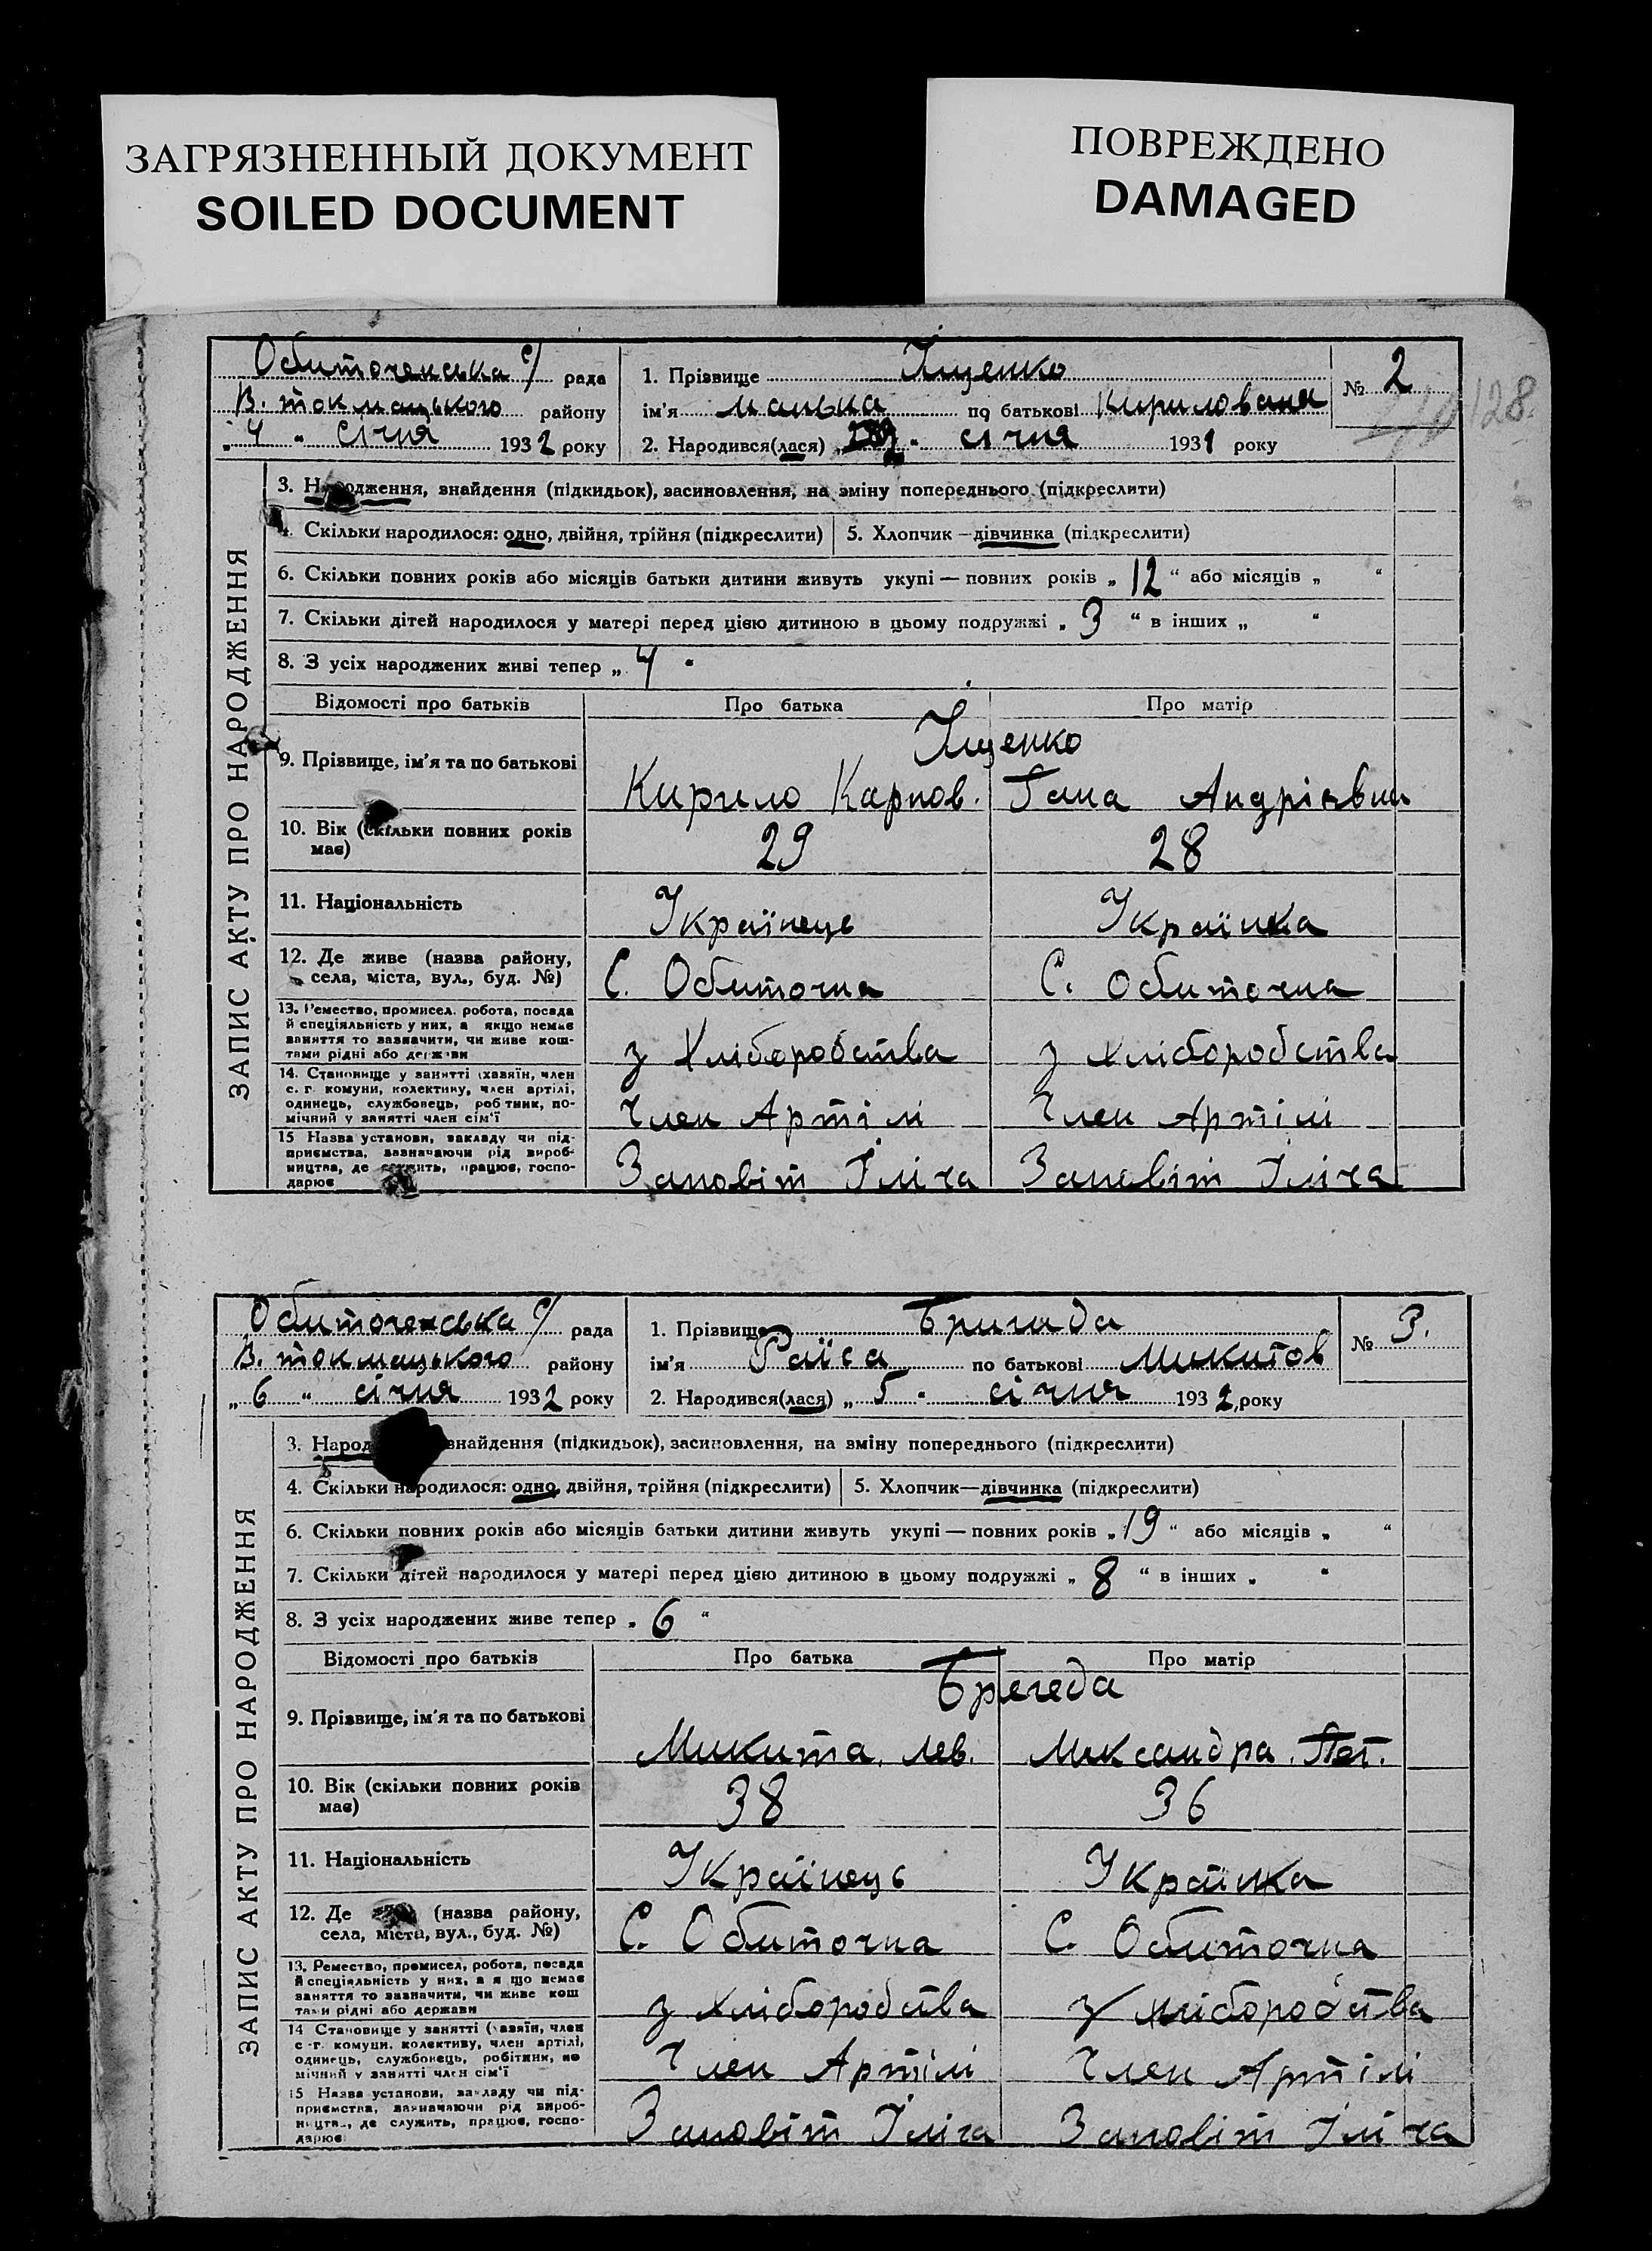 ЗАГРЯЗНЕННЫЙ ДОКУМЕНТ
SOILED DOCUMENT
ПОВРЕЖДЕНО
DAMAGED
128.
ЗАПИС АКТУ ПРО НАРОДЖЕННЯ
Обиточенська с/ рада
В. токмацького району
„ 4 " січня 1932 року
1. Прізвище Іщенко
ім'я по батькові Кирилована
2. Народився(лася) січня 1931 року
№ 2
3. Народження, знайдення (підкидьок), засиновлення, на зміну попереднього (підкреслити)
4. Скільки народилося: одно, двійня, трійня (підкреслити)
5. Хлопчик — дівчинка (підкреслити)
6. Скільки повних років або місяців батьки дитини живуть укупі — повних років „ 12 “ або місяців „ “
7. Скільки дітей народилося у матері перед цією дитиною в цьому подружжі „ 3 “ в інших „ “
8. З усіх народжених живі тепер „ 4 “
Відомості про батьків Про батька Про матір
9. Прізвище, ім'я та по батькові Іщенко
Кирило Карпов. Гана Андріївни
10. Вік (скільки повних років має) 29 28
11. Національність Українець Українка
12. Де живе (назва району, села, міста, вул., буд. №) С. Обиточна С. Обиточна
13. Ремество, промисел, робота, посада й спеціяльність у них, а якщо немає заняття то зазначити, чи живе коштами рідні або держави з Хліборобства з хліборобства
14. Становище у занятті (хазяїн, член с. г. комуни, колективу, член артілі, одинець, службовець, робітник, помічний у занятті член сім'ї Член Артілі Член Артілі
15 Назва установи, закладу чи підприємства, зазначаючи рід виробництва, де служить, працює, господарює Заповіт Іліча Заповіт Іліча
ЗАПИС АКТУ ПРО НАРОДЖЕННЯ
Обиточенська с/ рада
В. токмацького району
„ 6 “ січня 1932 року
1. Прізвище Бригида
ім'я Раїса по батькові Микитов
2. Народився(лася) „ 5 " січня 1932 року
№ 3.
3. Народ знайдення (підкидьок), засиновлення, на зміну попереднього (підкреслити)
4. Скільки народилося: одно, двійня, трійня (підкреслити)
5. Хлопчик—дівчинка (підкреслити)
6. Скільки повних років або місяців батьки дитини живуть укупі — повних років „ 19 “ або місяців „ “
7. Скільки дітей народилося у матері перед цією дитиною в цьому подружжі „ 8 “ в інших „ “
8. З усіх народжених живе тепер „ 6 “
Відомості про батьків Про батька Про матір
9. Прізвище, ім'я та по батькові Брегеда
Микита. Лев.
10. Вік (скільки повних років має) 38 36
11. Національність Українець Українка
12. Де (назва району, села, міста, вул., буд. №) С. Обиточна С. Обиточна
13. Ремество, промисел, робота, посада й спеціяльність у них, а якщо немає заняття то зазначити, чи живе коштами рідні або держави з хліборобства з хліборобства
14 Становище у занятті (хазяїн, член с.-г. комуни, колективу, член артілі, одинець, службовець, робітник, помічний у занятті член сім'ї Член Артілі Член Артілі
15 Назва установи, закладу чи підприємства, зазначаючи рід виробництва, де служить, працює, господарює Заповіт Іліча Заповіт Іліча